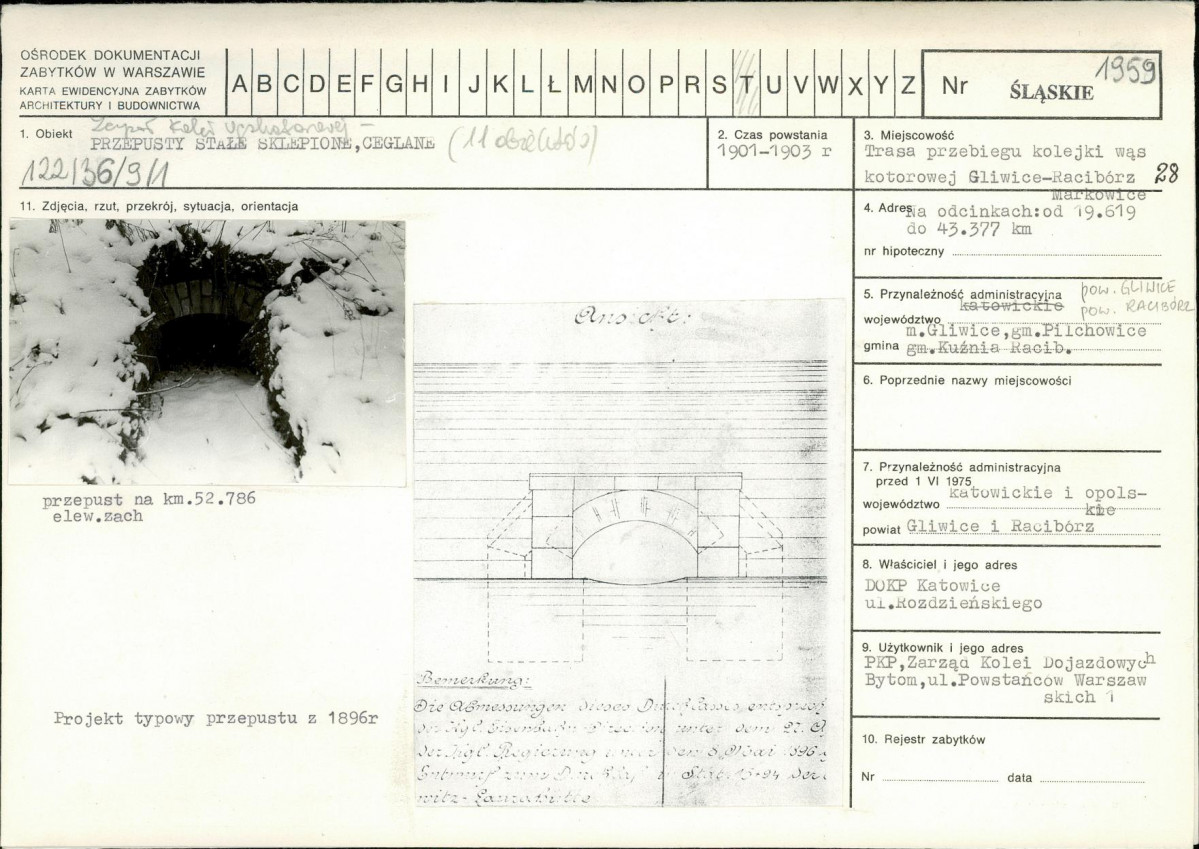 OŚRODEK DOKUMENTACJI
ZABYTKÓW W WARSZAWIE
KARTA EWIDENCYJNA ZABYTKÓW
ARCHITEKTURY I BUDOWNICTWA
A B C D E F G H I J K L Ł M N O P R S T U V W X Y Z
Nr 1959
ŚLĄSKIE
1. Obiekt
Zespół Kolei wąskotorowej –
PRZEPUSTY STAŁE SKLEPIONE, CEGLANE (11 obiektów)
122/36/9/1
2. Czas powstania
1901-1903 r
3. Miejscowość
Trasa przebiegu kolejki wąs
kotorowej Gliwice-Racibórz 28
Markowice
4. Adres
Na odcinkach:od 19.619
do 43.377 km
nr hipoteczny
5. Przynależność administracyjna
katowickie
pow. GLIWICE
pow. RACIBÓRZ
województwo
m.Gliwice,gm.Pilchowice
gmina gm.Kuźnia Racib.
6. Poprzednie nazwy miejscowości
7. Przynależność administracyjna
przed 1 VI 1975
województwo katowickie i opols-
kie
powiat Gliwice i Racibórz
8. Właściciel i jego adres
DOKP Katowice
ul.Rozdzieńskiego
9. Użytkownik i jego adres
PKP,Zarząd Kolei Dojazdowych
Bytom,ul.Powstańców Warszaw
skich 1
10. Rejestr zabytków
Nr data
11. Zdjęcia, rzut, przekrój, sytuacja, orientacja
przepust na km.52.786
elew.zach
Projekt typowy przepustu z 1896r
Ansicht:
Bemerkung:
Die Abmessungen dieses Durchlasses entsprech
der Kgl. Eisenbahn-Direktion unter dem 27.
der Kgl. Regierung unter dem 5. Mai 1896
Entwurf zum Durchlaß in Stat. 15+94 der
witz-Laurahütte